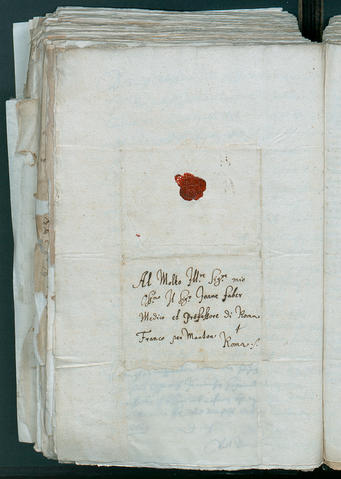 Al Molto Ill.re Sig.re mio
Oss.mo Il Sig.r Joane faber
Medico et Professore di Roma
Franco per Mantoa
Roma